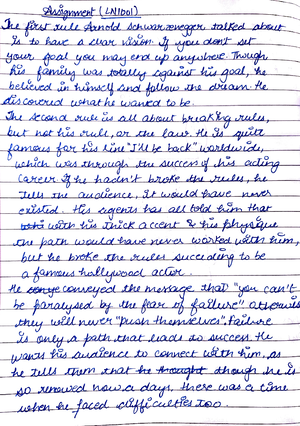 Assignment (LN1001)
The first rule Arnold schwarzenegger talked about
is to have a clear vision. If you don't set
your goal you may end up anywhere. Though
his family was totally against his goal, he
believed in himself and follow the dream. He
discovered what he wanted to be.
The second rule is all about breaking rules,
but not his rull, or the law. He is quite
famous for his line "I'll be back" worldwide,
which was through the success of his acting
career. If he hadn't broke the rules, he
tells the audience, it would have never
existed. His agents has all told him that
with his thick accent & his physique
the path would have never worked with him,
but he broke the rules succeding to be
a famous hollywood actor.
He conveyed the message that "you can't
be paralysed by the fear of failure"
they will never "push themselves". Failure
is only a path that leads to success. He
wants his audience to connect with him, as
he tells them that he thought though he is
so renowed now a days, there was a time
when he faced difficulties too.